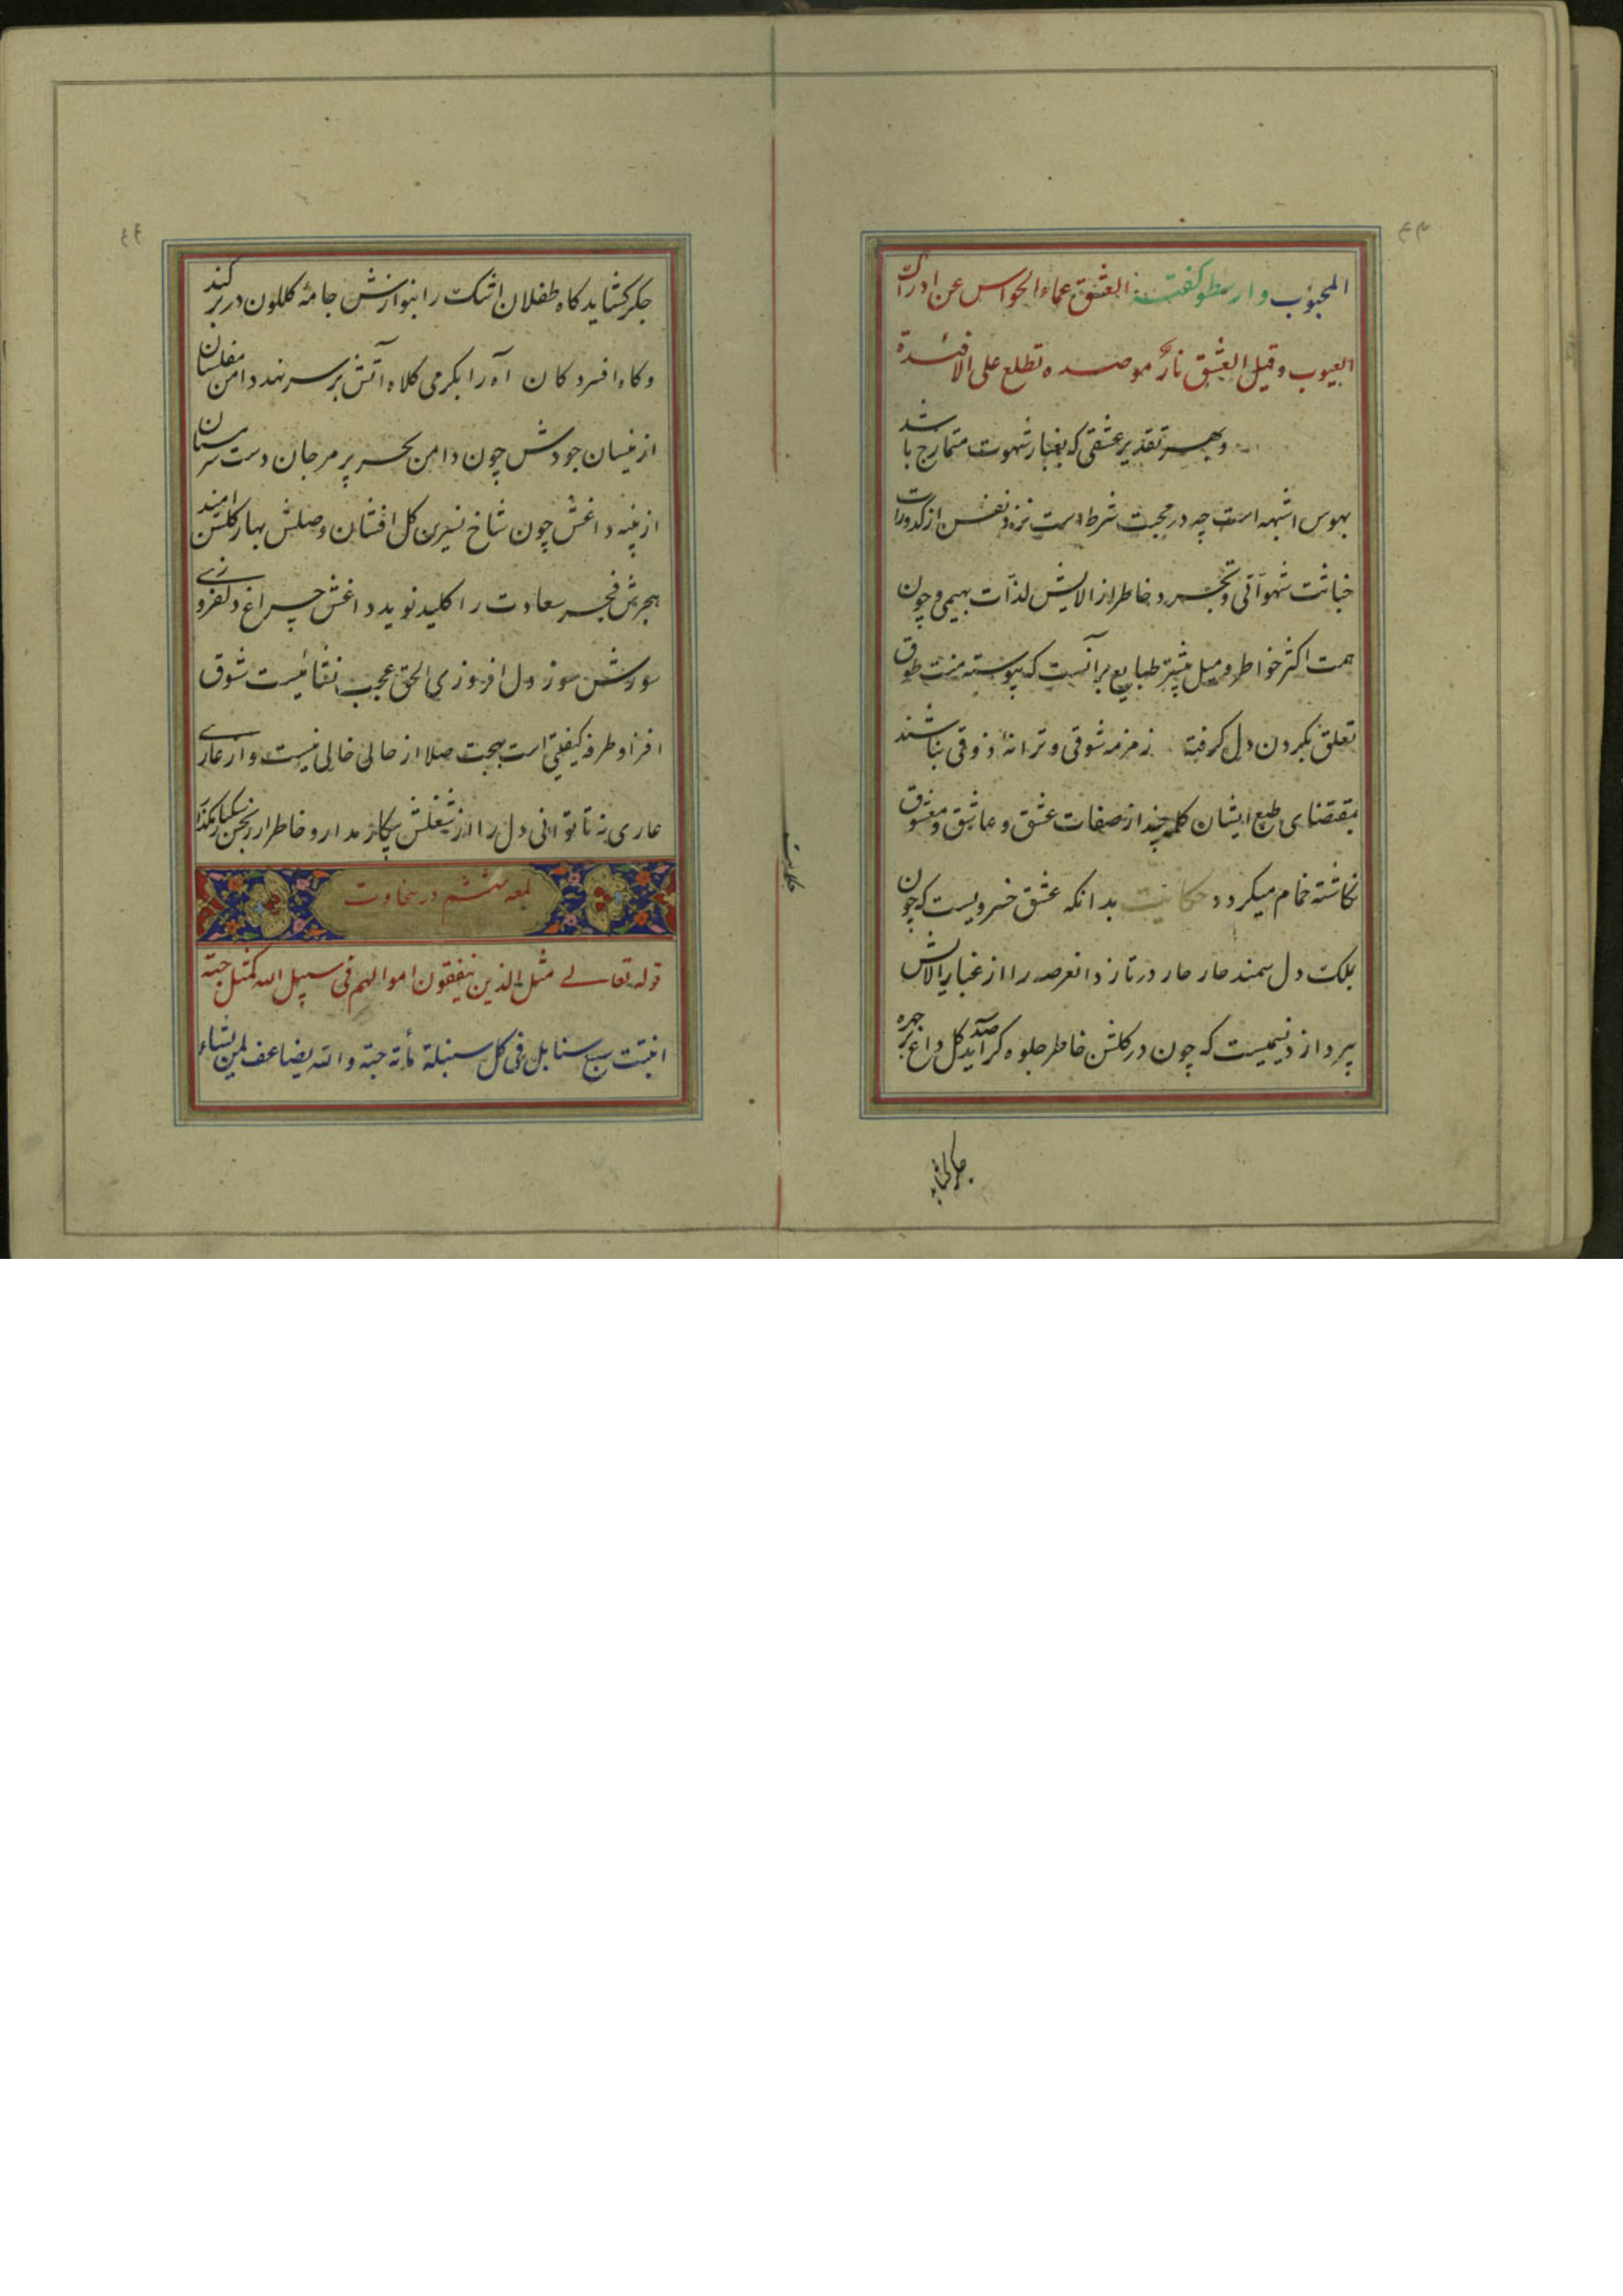 المحبوب وارسطو کفته العشق عماء الحواس عن ادراک
العیوب وقیل العشق نار موصده تطلع علی الافئدة
وبهر تقدیر عشقی که بغبار شهوت متمازج باشد
بهوس اشبهه است چه در محبت شرطست نزه نفس از کدورات
خباثت شهوانی وتجرد خاطر از الایش لذات بهیمی و چون
همت اکثر خواطر ومیل بیشتر طبایع برآنست که پیوسته منت طوق
تعلق بکردن دل کرفته زمزمه شوقی و ترانهٔ ذوقی بناشند
بمقتضای طبع ایشان کلمه چند از صفات عشق و عاشق و معشوق
نکاشته خامه میکردد حکایت بدانکه عشق خسرویست که چون
بملک دل سمند در تازد انعرصه را از غبار الایش
پردازد نسیمیست که چون در کلشن خاطر جلوه کر آید صد کل داغ بر چهره
جکر کشاید
جکر کشاید کاه طفلان اشک را بنوازش جامهٔ کلکون در بر کند
وکاه افسردکان آه را بکرمی کلاه آتش بر سر نهد دامن مفلسان
از نیسان جودش چون دامن بحر پر مرجان دست سرمستان
از پنبه داغش چون شاخ نسرین کل افشان وصلش بهار کلشن امید
هجرش فجر سعادت را کلید نوید داغش چراغ دلفروزی
سوزشش سوز دل افروزی الحق عجب نشائیست شوق
افزا و طرفه کیفیتی است بهجت صلا از حالی خالی نیست و از عاری
عاری نه تا توانی دل را از شغلش بیکار مدار و خاطر از رنجش سبکبار مکذار
لمعه ششم در سخاوت
قوله تعالی مثل الذین ینفقون اموالهم فی سبیل الله کمثل حبة
انبتت سبع سنابل فی کل سنبلة مأته حبة والله یضاعف لمن یشاء